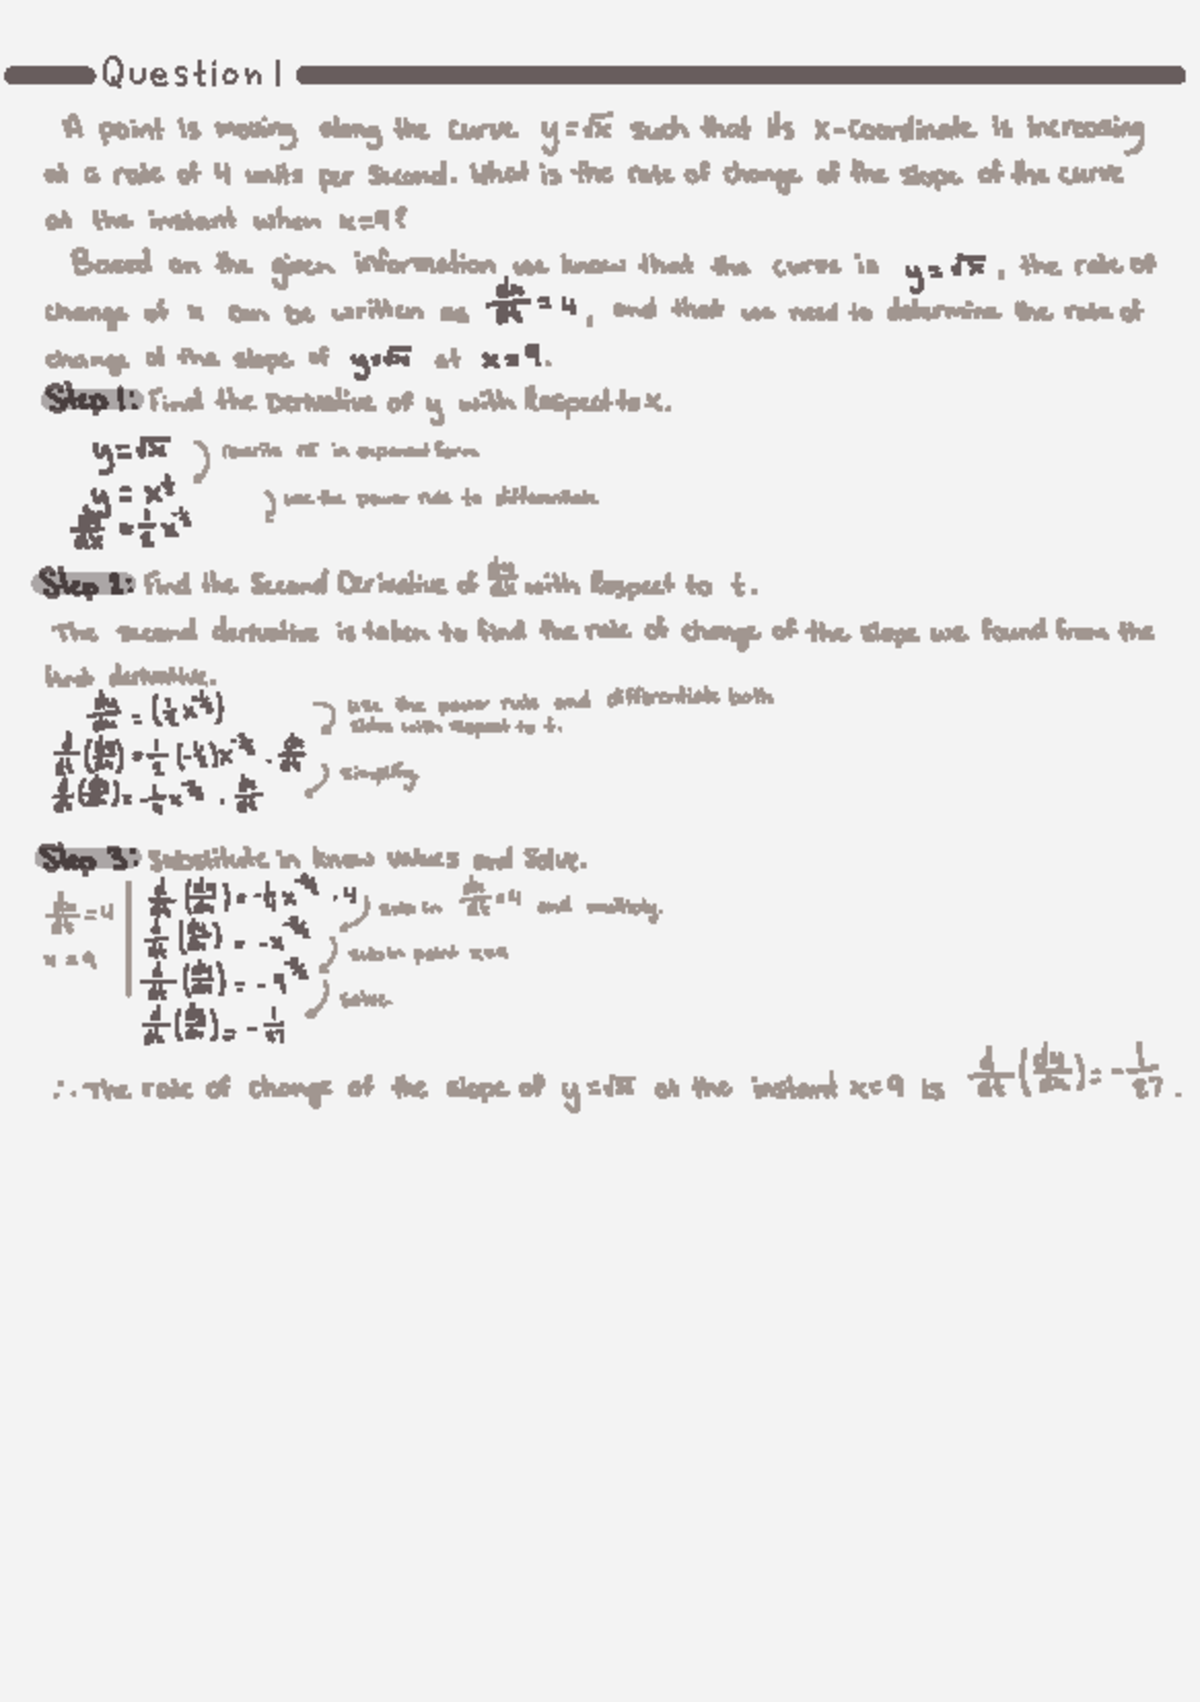 Question 1
A point is moving along the curve y=√x such that its x-coordinate is increasing
at a rate of 4 units per second. What is the rate of change of the slope of the curve
at the instant when x=9?
Based on the given information we know that the curve is y=√x, the rate of
change of x can be written as dx/dt = 4, and that we need to determine the rate of
change of the slope of y=√x at x=9.
Step 1: Find the Derivative of y with Respect to x.
y=√x rewrite √x in exponent form
y = x^½ use the power rule to differentiate
dy/dx = 1/2 x^-½
Step 2: Find the Second Derivative of dy/dx with Respect to t.
The second derivative is taken to find the rate of change of the slope we found from the
first derivative.
dy/dx = (½x^-½) use the power rule and differentiate both
sides with respect to t.
d/dt (dy/dx) = 1/2 (-½)x^-3/2 · dx/dt
d/dt (dy/dx) = -1/4 x^-3/2 · dx/dt simplify
Step 3: Substitute in know values and Solve.
dx/dt = 4 d/dt (dy/dx) = -¼x^-3/2 · 4 sub in dx/dt = 4 and multiply.
x = 9 d/dt (dy/dx) = -x^-3/2 sub in point x=9
d/dt (dy/dx) = -9^-3/2 solve
d/dt (dy/dx) = -1/27
∴ The rate of change of the slope of y=√x at the instant x=9 is d/dt (dy/dx) = -1/27.